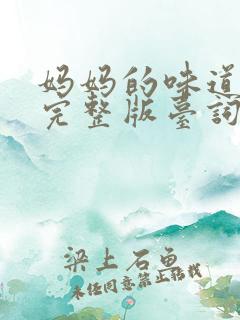 妈妈的味道
完整版臺词
梁上石鱼
未经同意禁止转载